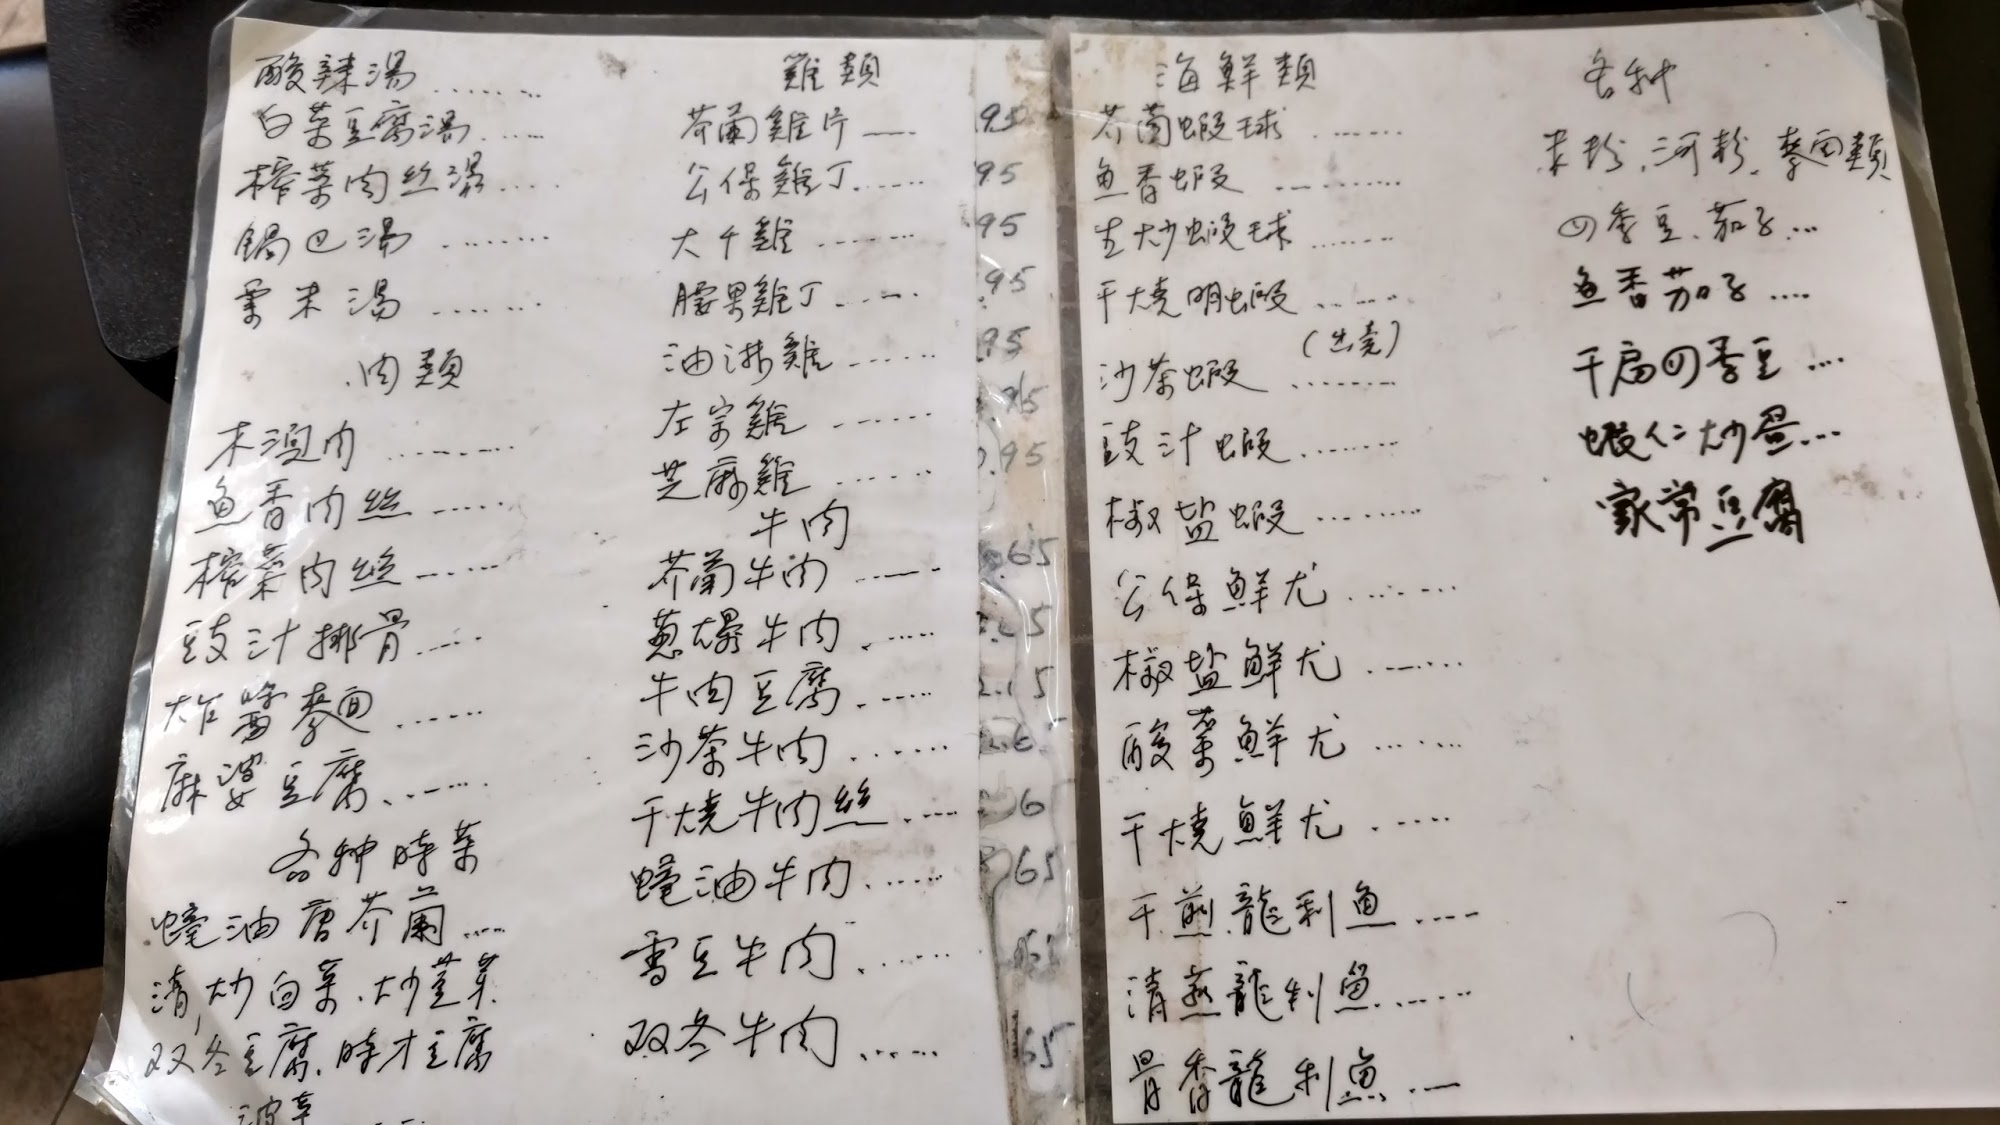 酸辣湯........
白菜豆腐湯......
榨菜肉丝湯.....
鍋巴湯........
粟米湯.......
肉類
木須肉........
魚香肉絲......
榨菜肉絲......
豉汁排骨.....
炸醬麵......
麻婆豆腐......
各种時菜
蠔油唐芥蘭....
清炒白菜.炒菠菜
双冬豆腐.時才豆腐
雞類
芥蘭雞片...... 95
公保雞丁...... 95
大千雞....... 95
腰果雞丁...... 95
油淋雞....... 95
左宗雞.......
芝麻雞....... .95
牛肉
芥蘭牛肉...... .65
葱爆牛肉......
牛肉豆腐......
沙茶牛肉.......
干燒牛肉絲.....
蠔油牛肉...... 65
雪豆牛肉......
双冬牛肉...... 65
海鮮類
芥蘭蝦球.......
魚香蝦.........
生炒蝦球.......
干燒明蝦......
(出壳)
沙茶蝦........
豉汁蝦.......
椒盐蝦........
公保鮮尤.......
椒盐鮮尤......
酸菜鮮尤......
干燒鮮尤......
干煎龍利魚....
清蒸龍利魚......
骨香龍利魚...
各种
米粉.河粉.麥面類
四季豆.茄子...
魚香茄子....
干扁四季豆....
蝦仁炒蛋...
家常豆腐